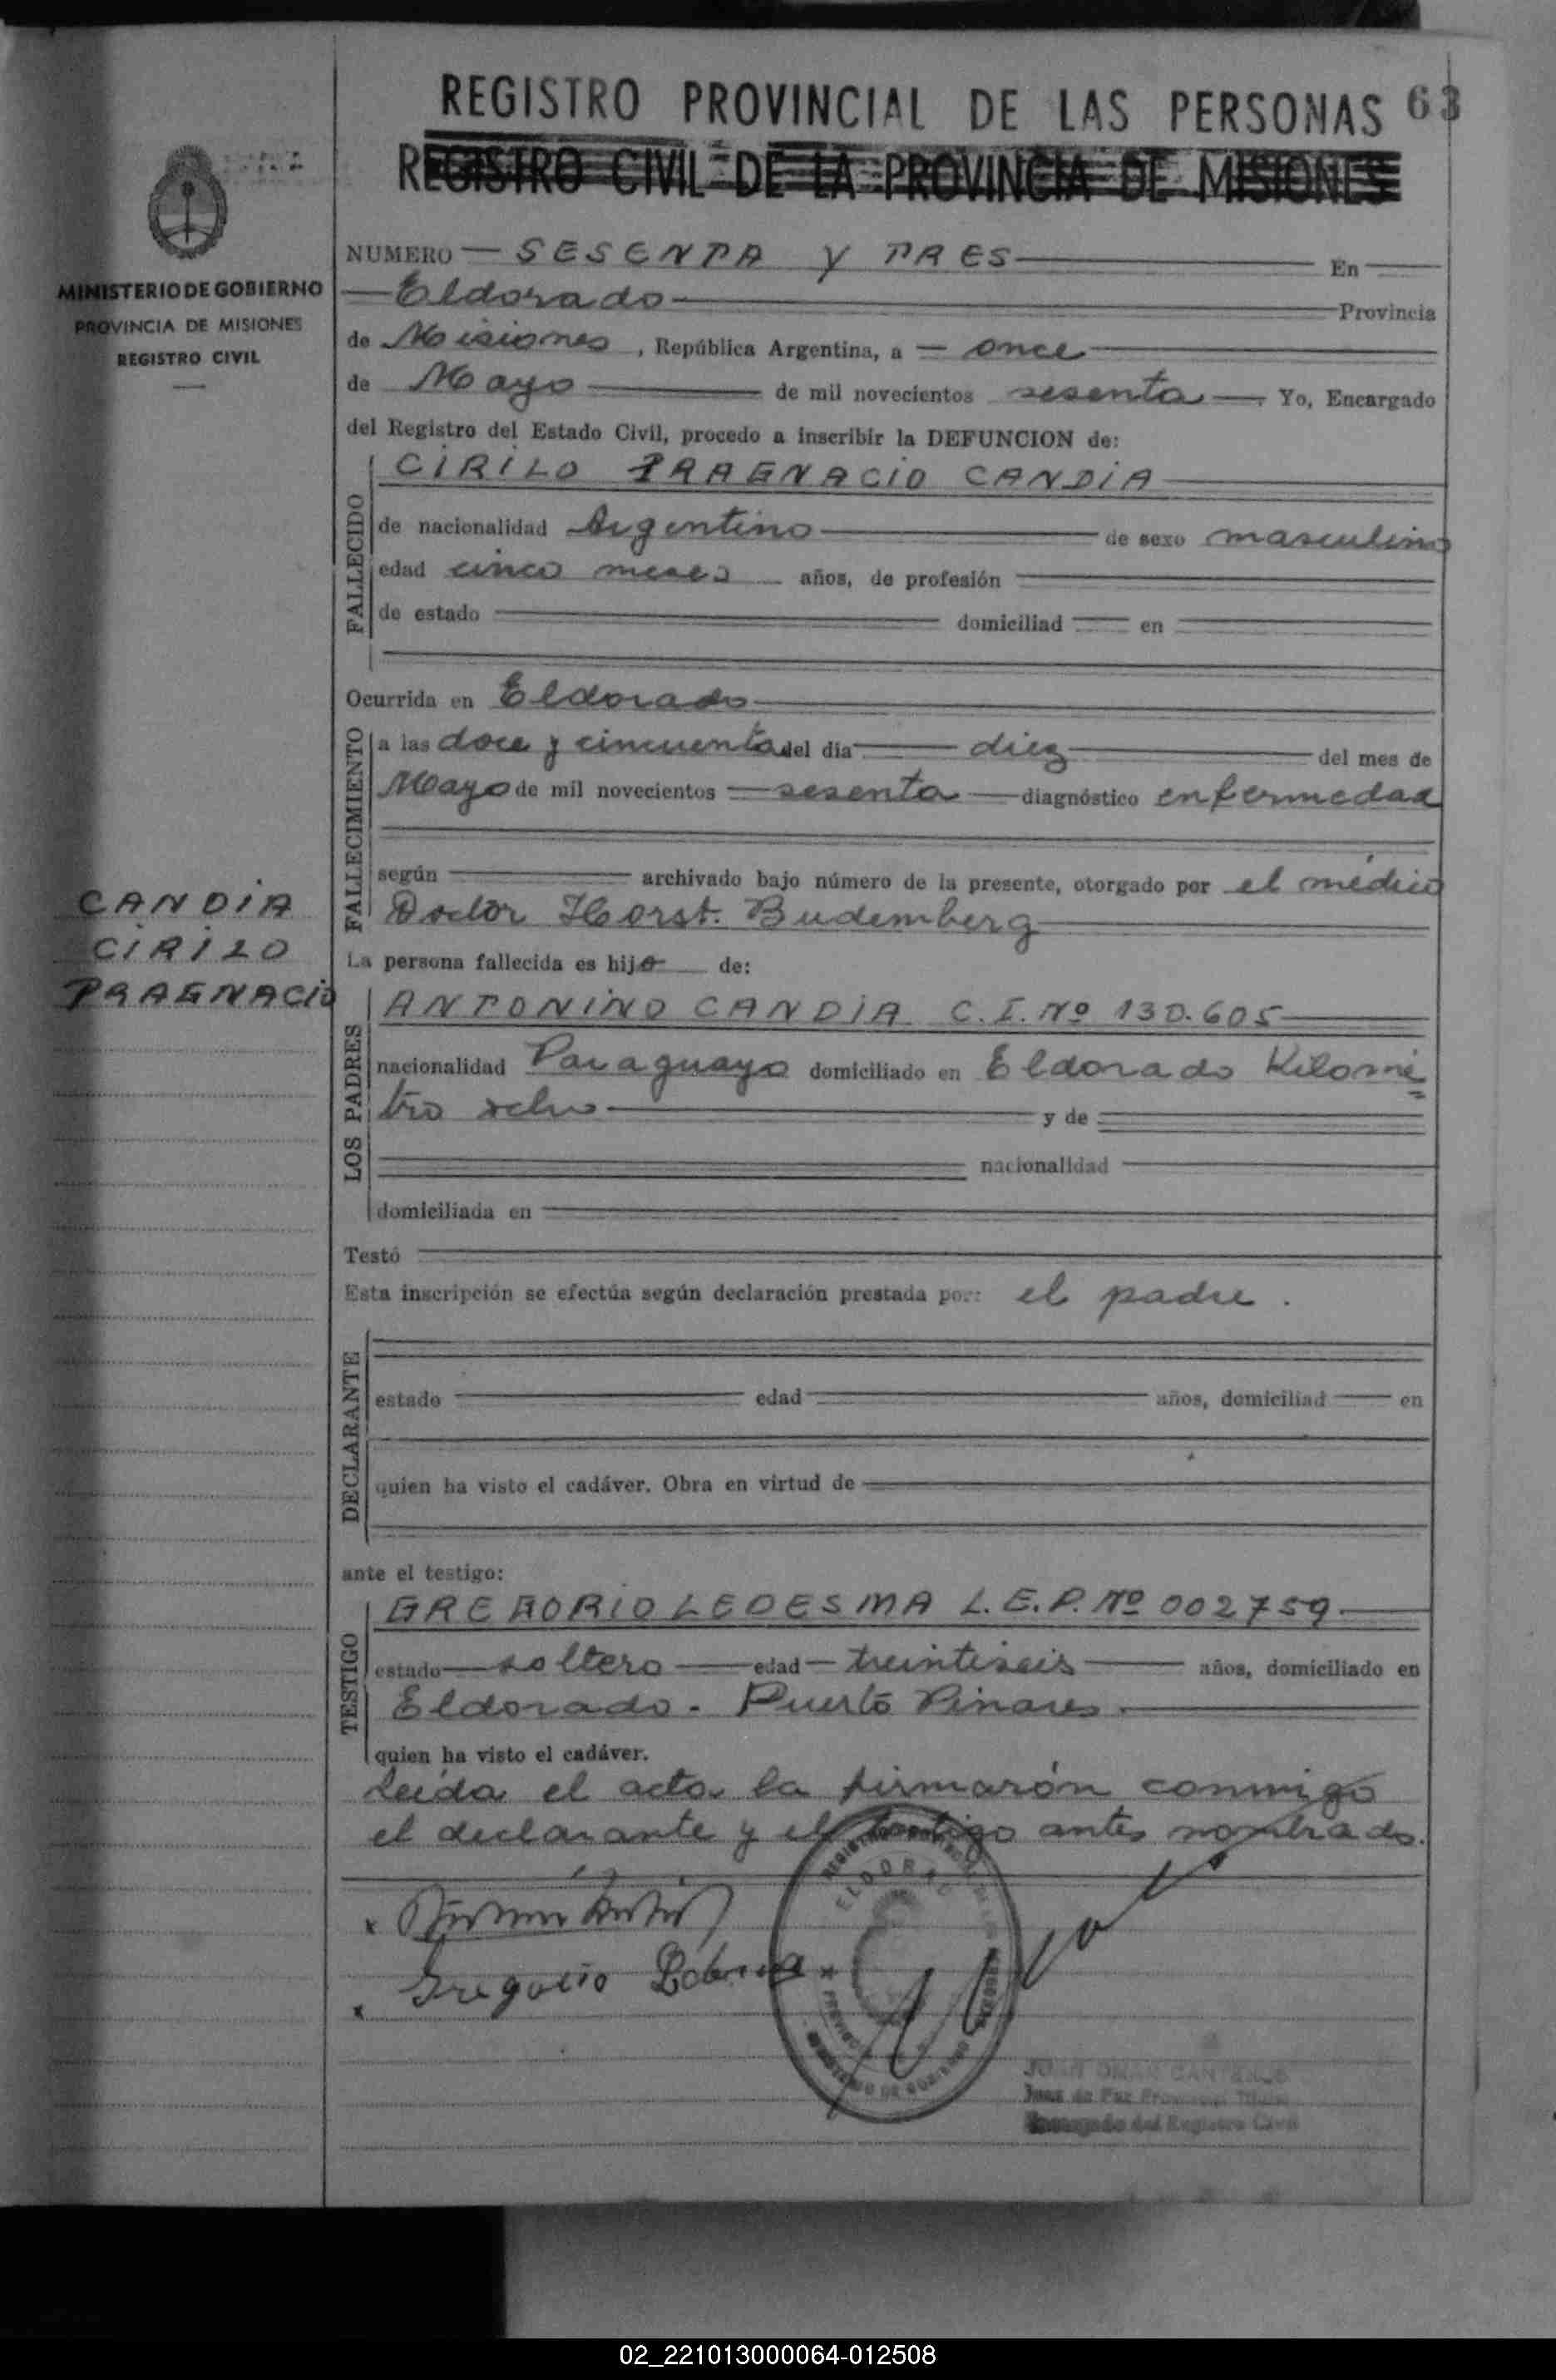 REGISTRO PROVINCIAL DE LAS PERSONAS 63
REGISTRO CIVIL DE LA PROVINCIA DE MISIONES
MINISTERIO DE GOBIERNO
PROVINCIA DE MISIONES
REGISTRO CIVIL
NUMERO — SESENTA Y TRES — En
Eldorado — Provincia
de Misiones, República Argentina, a — once
de Mayo — de mil novecientos sesenta — Yo, Encargado
del Registro del Estado Civil, procedo a inscribir la DEFUNCION de:
FALLECIDO
CIRILO PRAGNACIO CANDIA
de nacionalidad Argentino — de sexo masculino
edad cinco meses años, de profesión
de estado domiciliad en
Ocurrida en Eldorado
FALLECIMIENTO
a las doce y cincuenta del día — diez — del mes de
Mayo de mil novecientos — sesenta — diagnóstico enfermedad
según archivado bajo número de la presente, otorgado por el médico
Doctor Horst. Budemberg
CANDIA
CIRILO
PRAGNACIO
La persona fallecida es hijo de:
LOS PADRES
ANTONINO CANDIA C.I. Nº 130.605
nacionalidad Paraguayo domiciliado en Eldorado Kilomé
tro ocho — y de
nacionalidad
domiciliada en
Testó
Esta inscripción se efectúa según declaración prestada por: el padre.
DECLARANTE
estado edad años, domiciliad en
quien ha visto el cadáver. Obra en virtud de
ante el testigo:
TESTIGO
GREGORIO LEDESMA L.E.P. Nº 002759
estado — soltero — edad — treintiseis — años, domiciliado en
Eldorado - Puerto Pinares.
quien ha visto el cadáver.
Leída el acta la firmarón conmigo
el declarante y el testigo antes nombrado.
Gregorio
ELDORADO
Juez de Paz
Encargado del Registro Civil
02_221013000064-012508